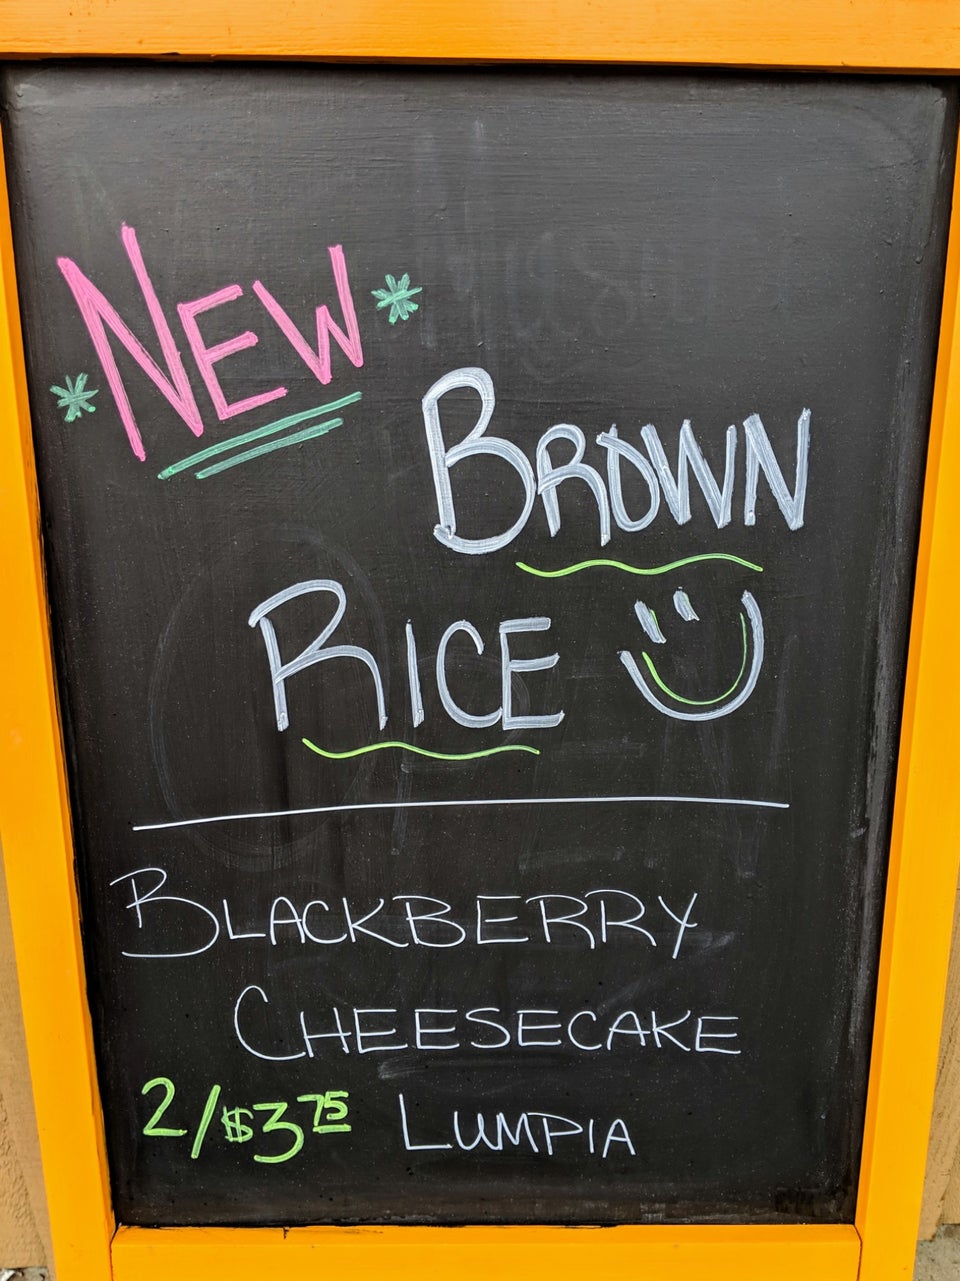 NEW
BROWN
RICE
BLACKBERRY
CHEESECAKE
2/$3.75 LUMPIA